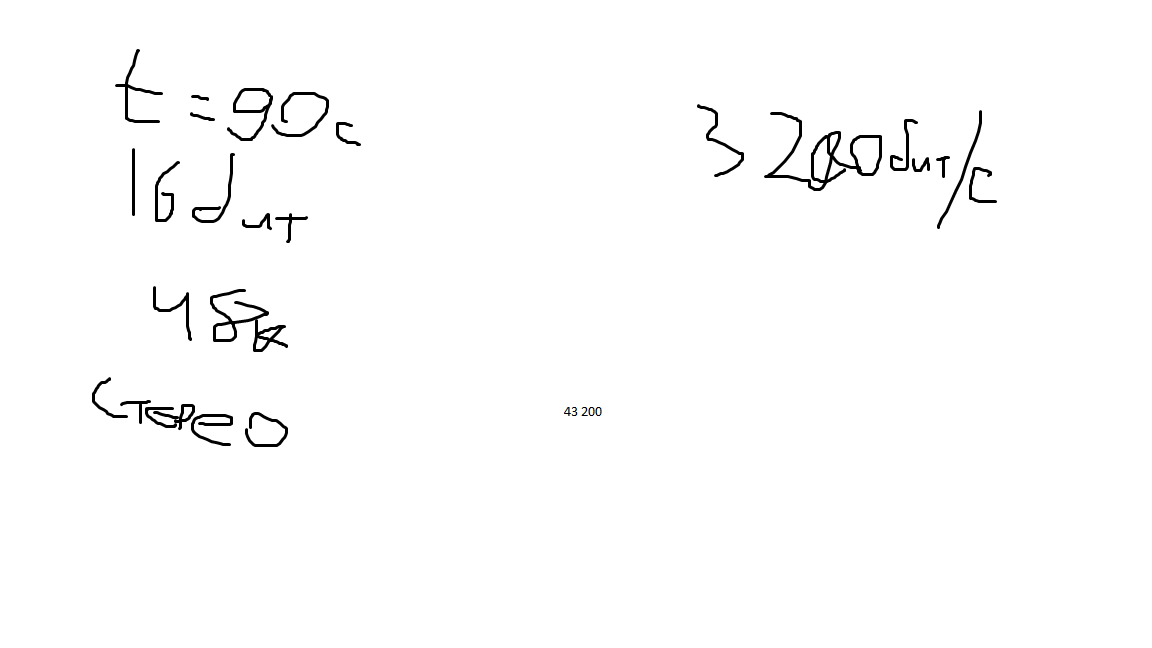 t = 90 с
16 бит
48к
стерео
3 200 бит/с
43 200